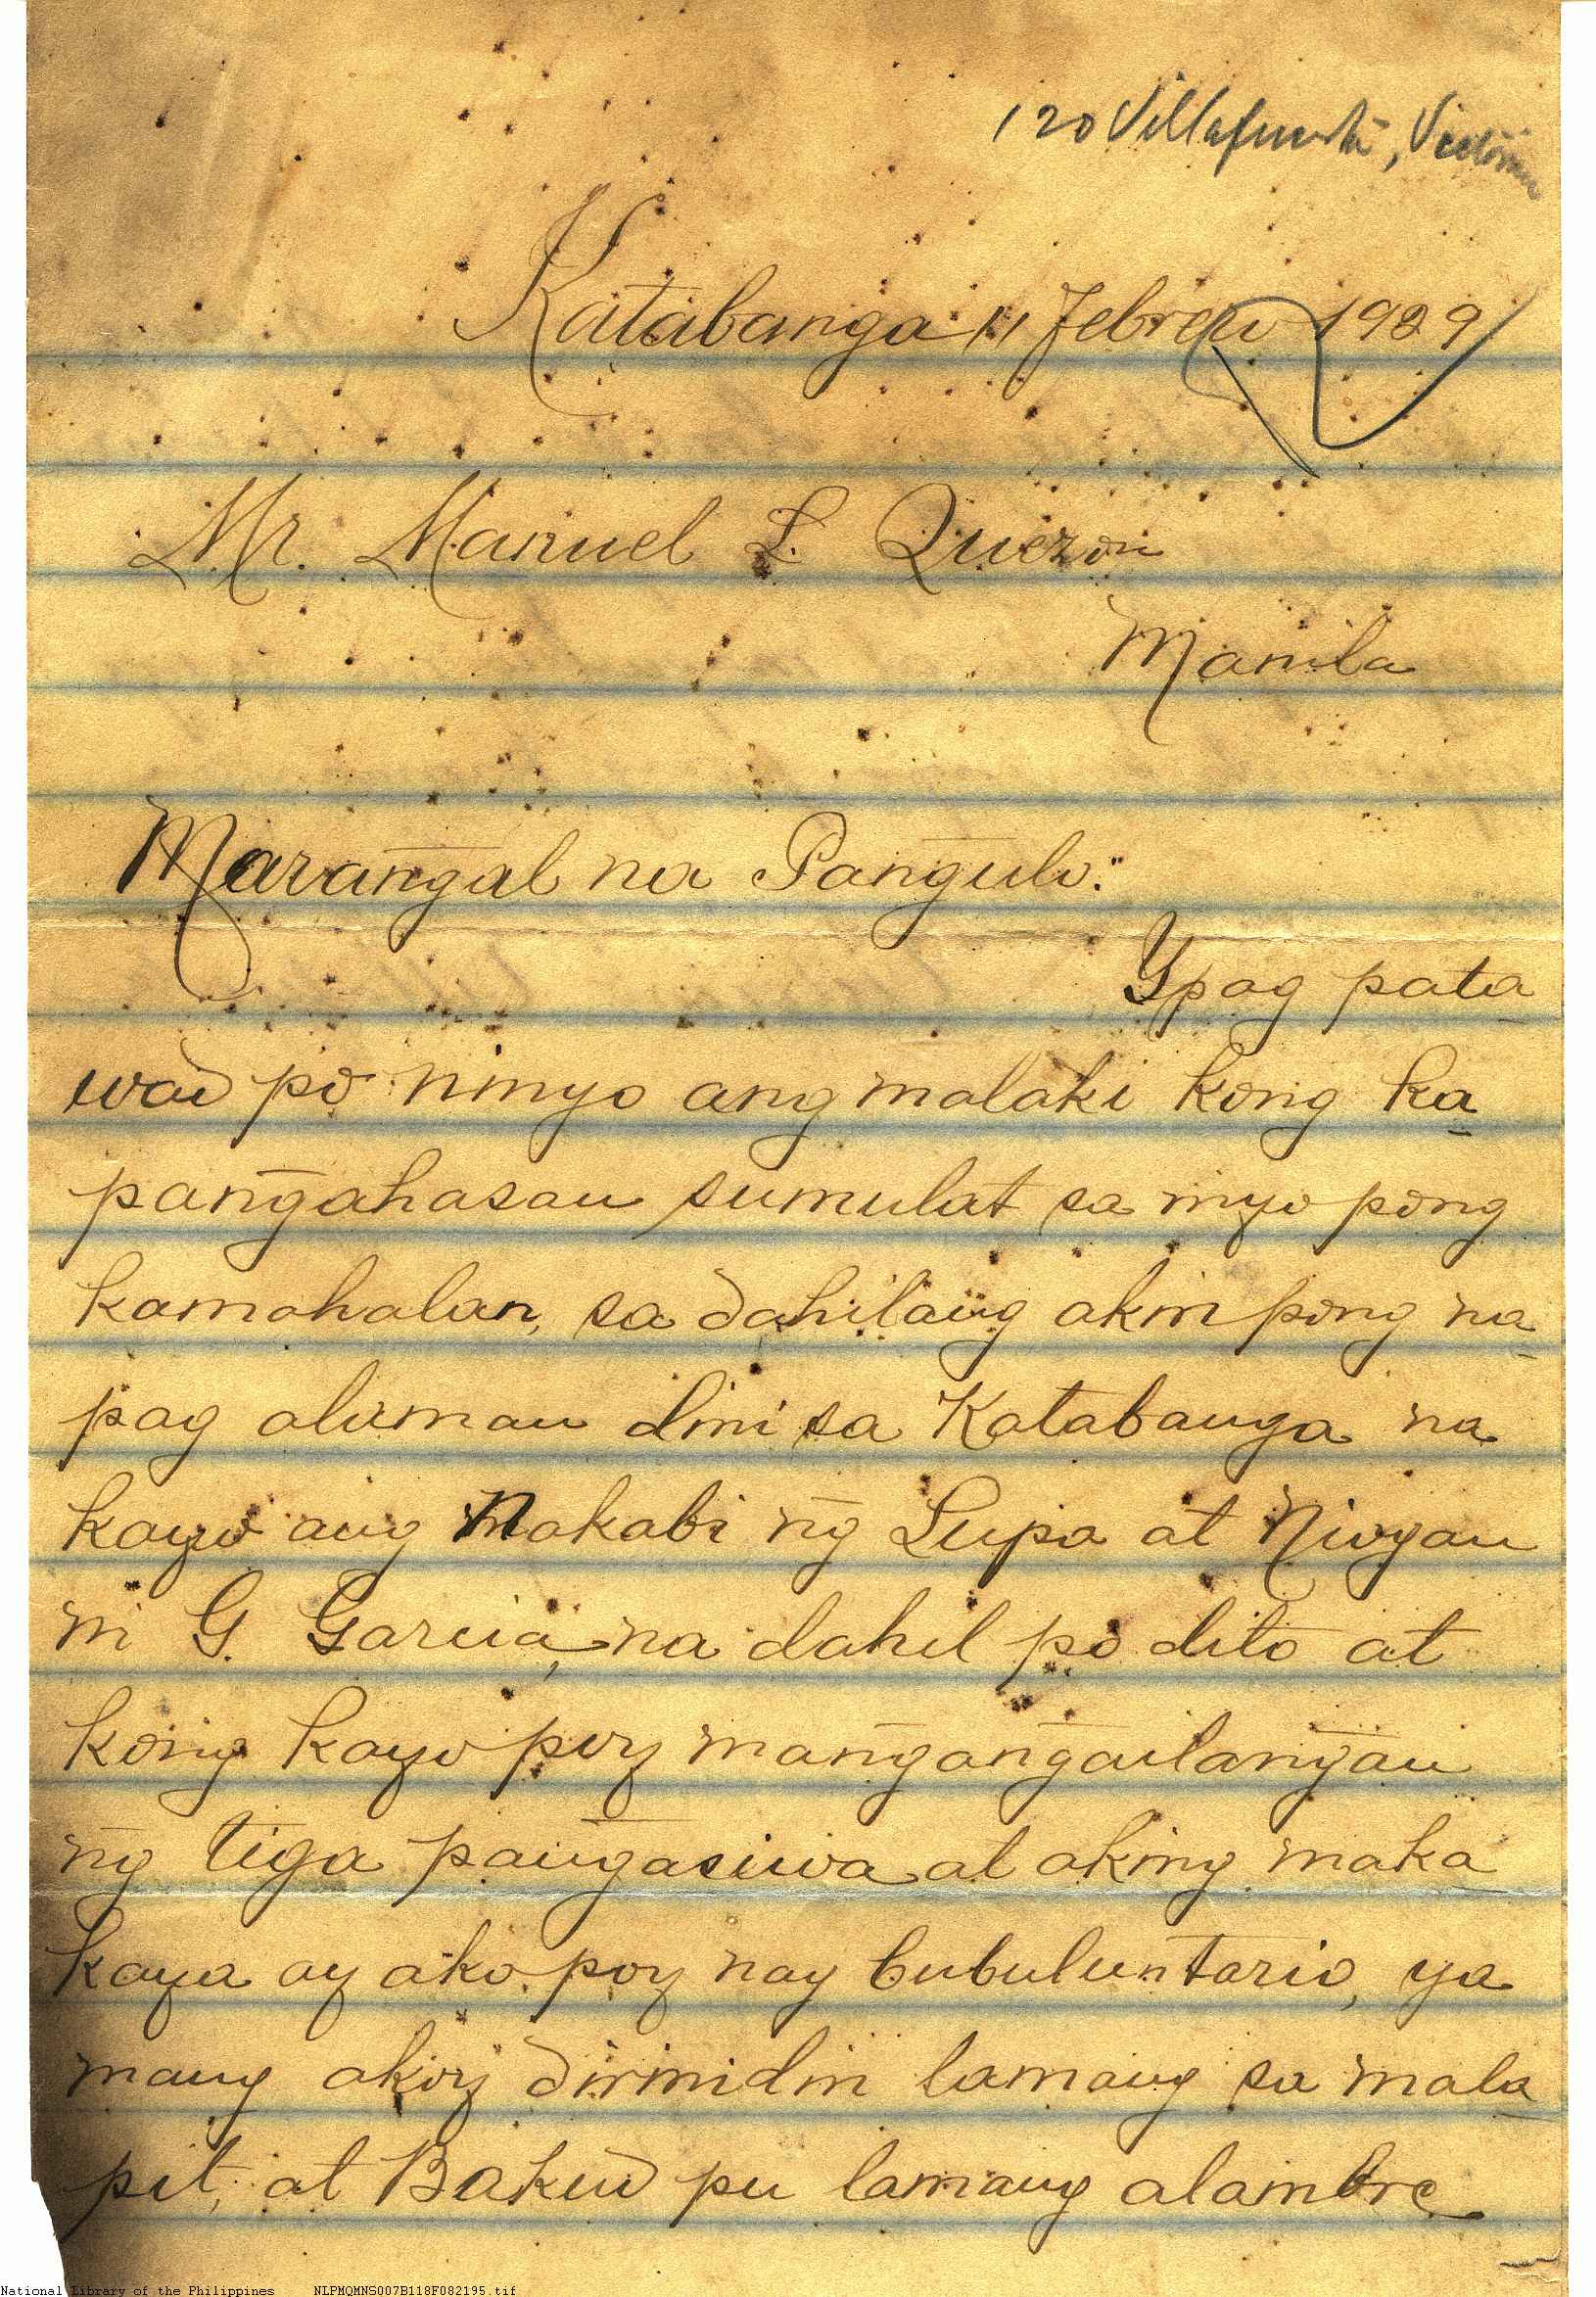 120 Villafuerte, Victorin
Katabanga 11 Febrero 1929
Mr. Manuel L. Quezon
Manila
Maran̄gal na Pan̄gulo:
Ypag pata
wad po ninyo ang malaki kong ka
pan̄gahasan sumulat sa inyo pong
kamahalan, sa dahilang akin pong na
pag alaman dini sa Katabanga na
kayo ang nakabi n̄g Lupa at Niogan
ni G. Garcia, na dahil po dito at
kong kayo poy man̄gan̄gailan̄gan
n̄g tiga pan̄gasiwa at aking maka
kaya ay ako poy nag bubuluntario, ya
mang akoy dirinidin lamang sa mala
pit, at Bakud pu lamang alambre
National Library of the Philippines NLPMQMNS007B118F082195.tif